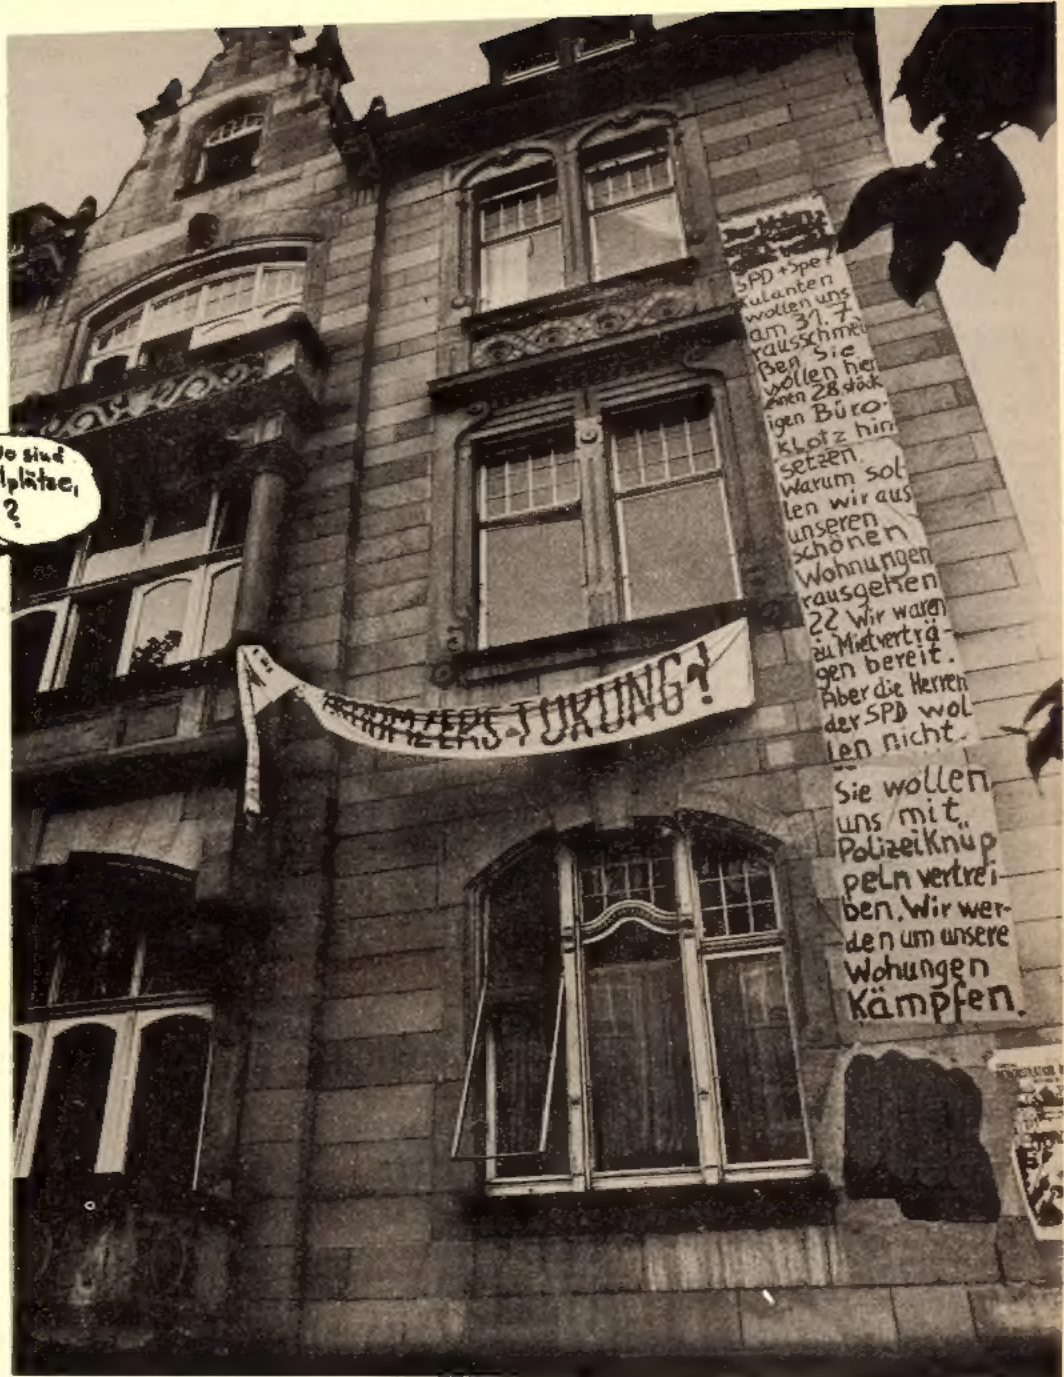 sind
?
ZERSTÖRUNG?
SPD + Spe
kulanten
wollen uns
am 31.7.
rausschmei
ßen. Sie
wollen hier
einen 28 stöck
igen Büro
klotz hin
setzen.
Warum sol
len wir aus
unseren
schönen
Wohnungen
rausgehen
?? Wir waren
zu Mietverträ-
gen bereit.
Aber die Herren
der SPD wol
len nicht.
Sie wollen
uns mit
Polizeiknüp
peln vertrei
ben. Wir wer-
den um unsere
Wohungen
Kämpfen.